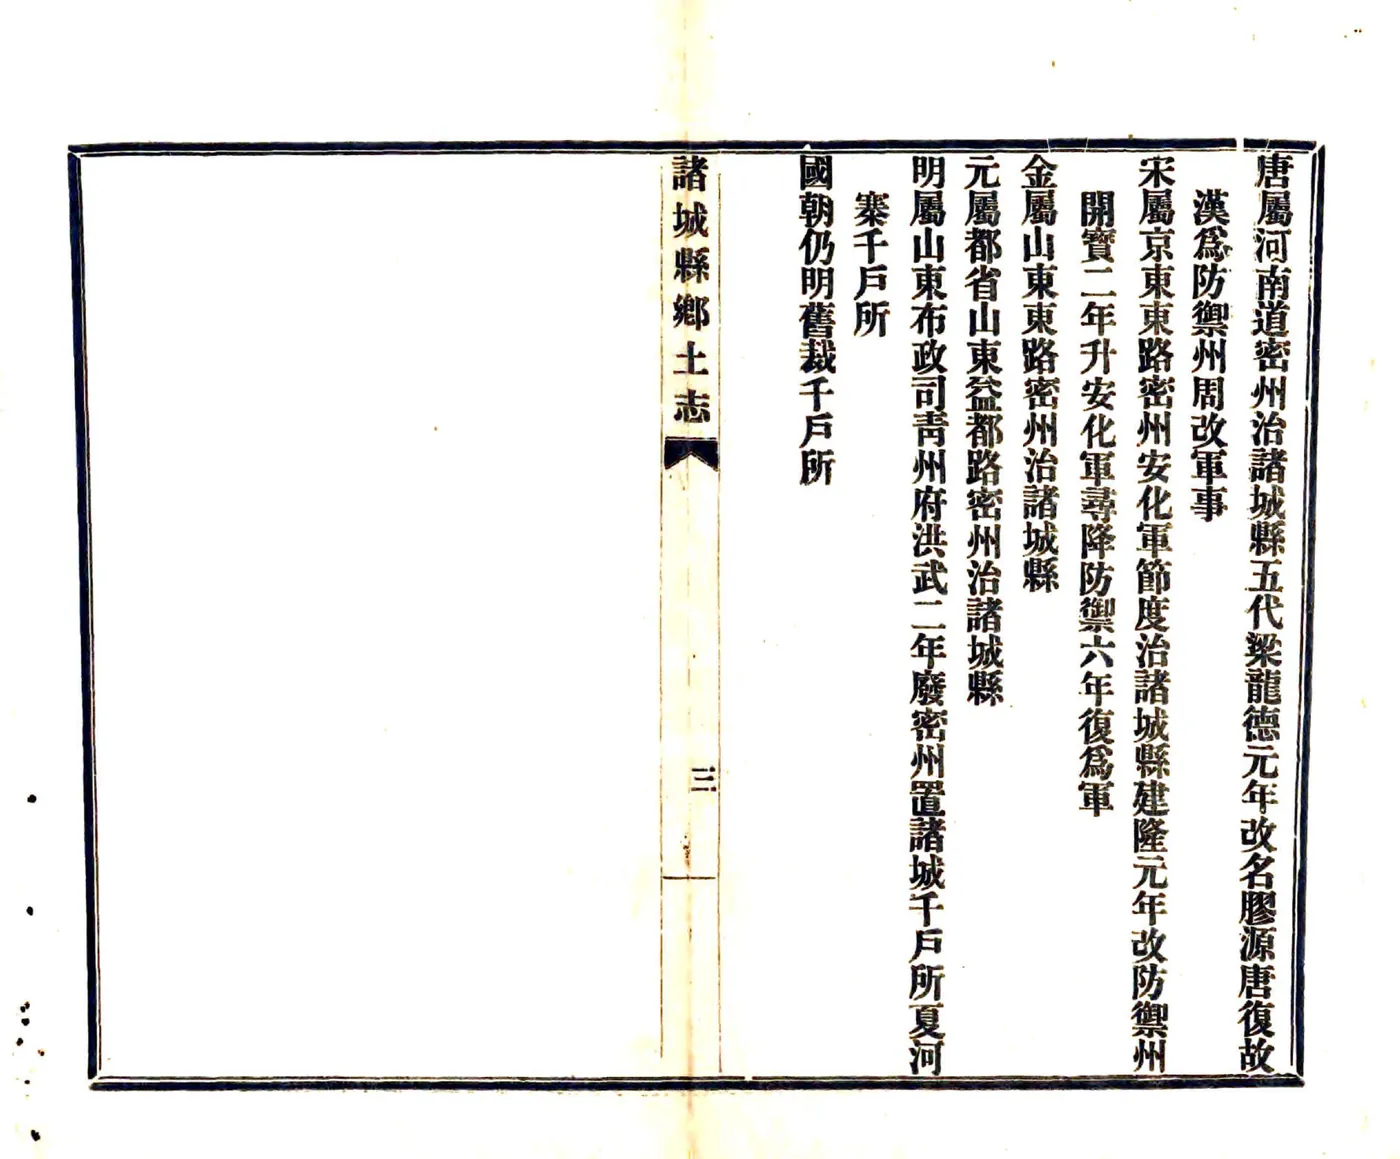 唐屬河南道密州治諸城縣五代梁龍德元年改名膠源唐復故
漢爲防禦州周改軍事
宋屬京東東路密州安化軍節度治諸城縣建隆元年改防禦州
開寶二年升安化軍尋降防禦六年復爲軍
金屬山東東路密州治諸城縣
元屬都省山東益都路密州治諸城縣
明屬山東布政司青州府洪武二年廢密州置諸城千戶所夏河
寨千戶所
國朝仍明舊裁千戶所
諸城縣鄉土志
三